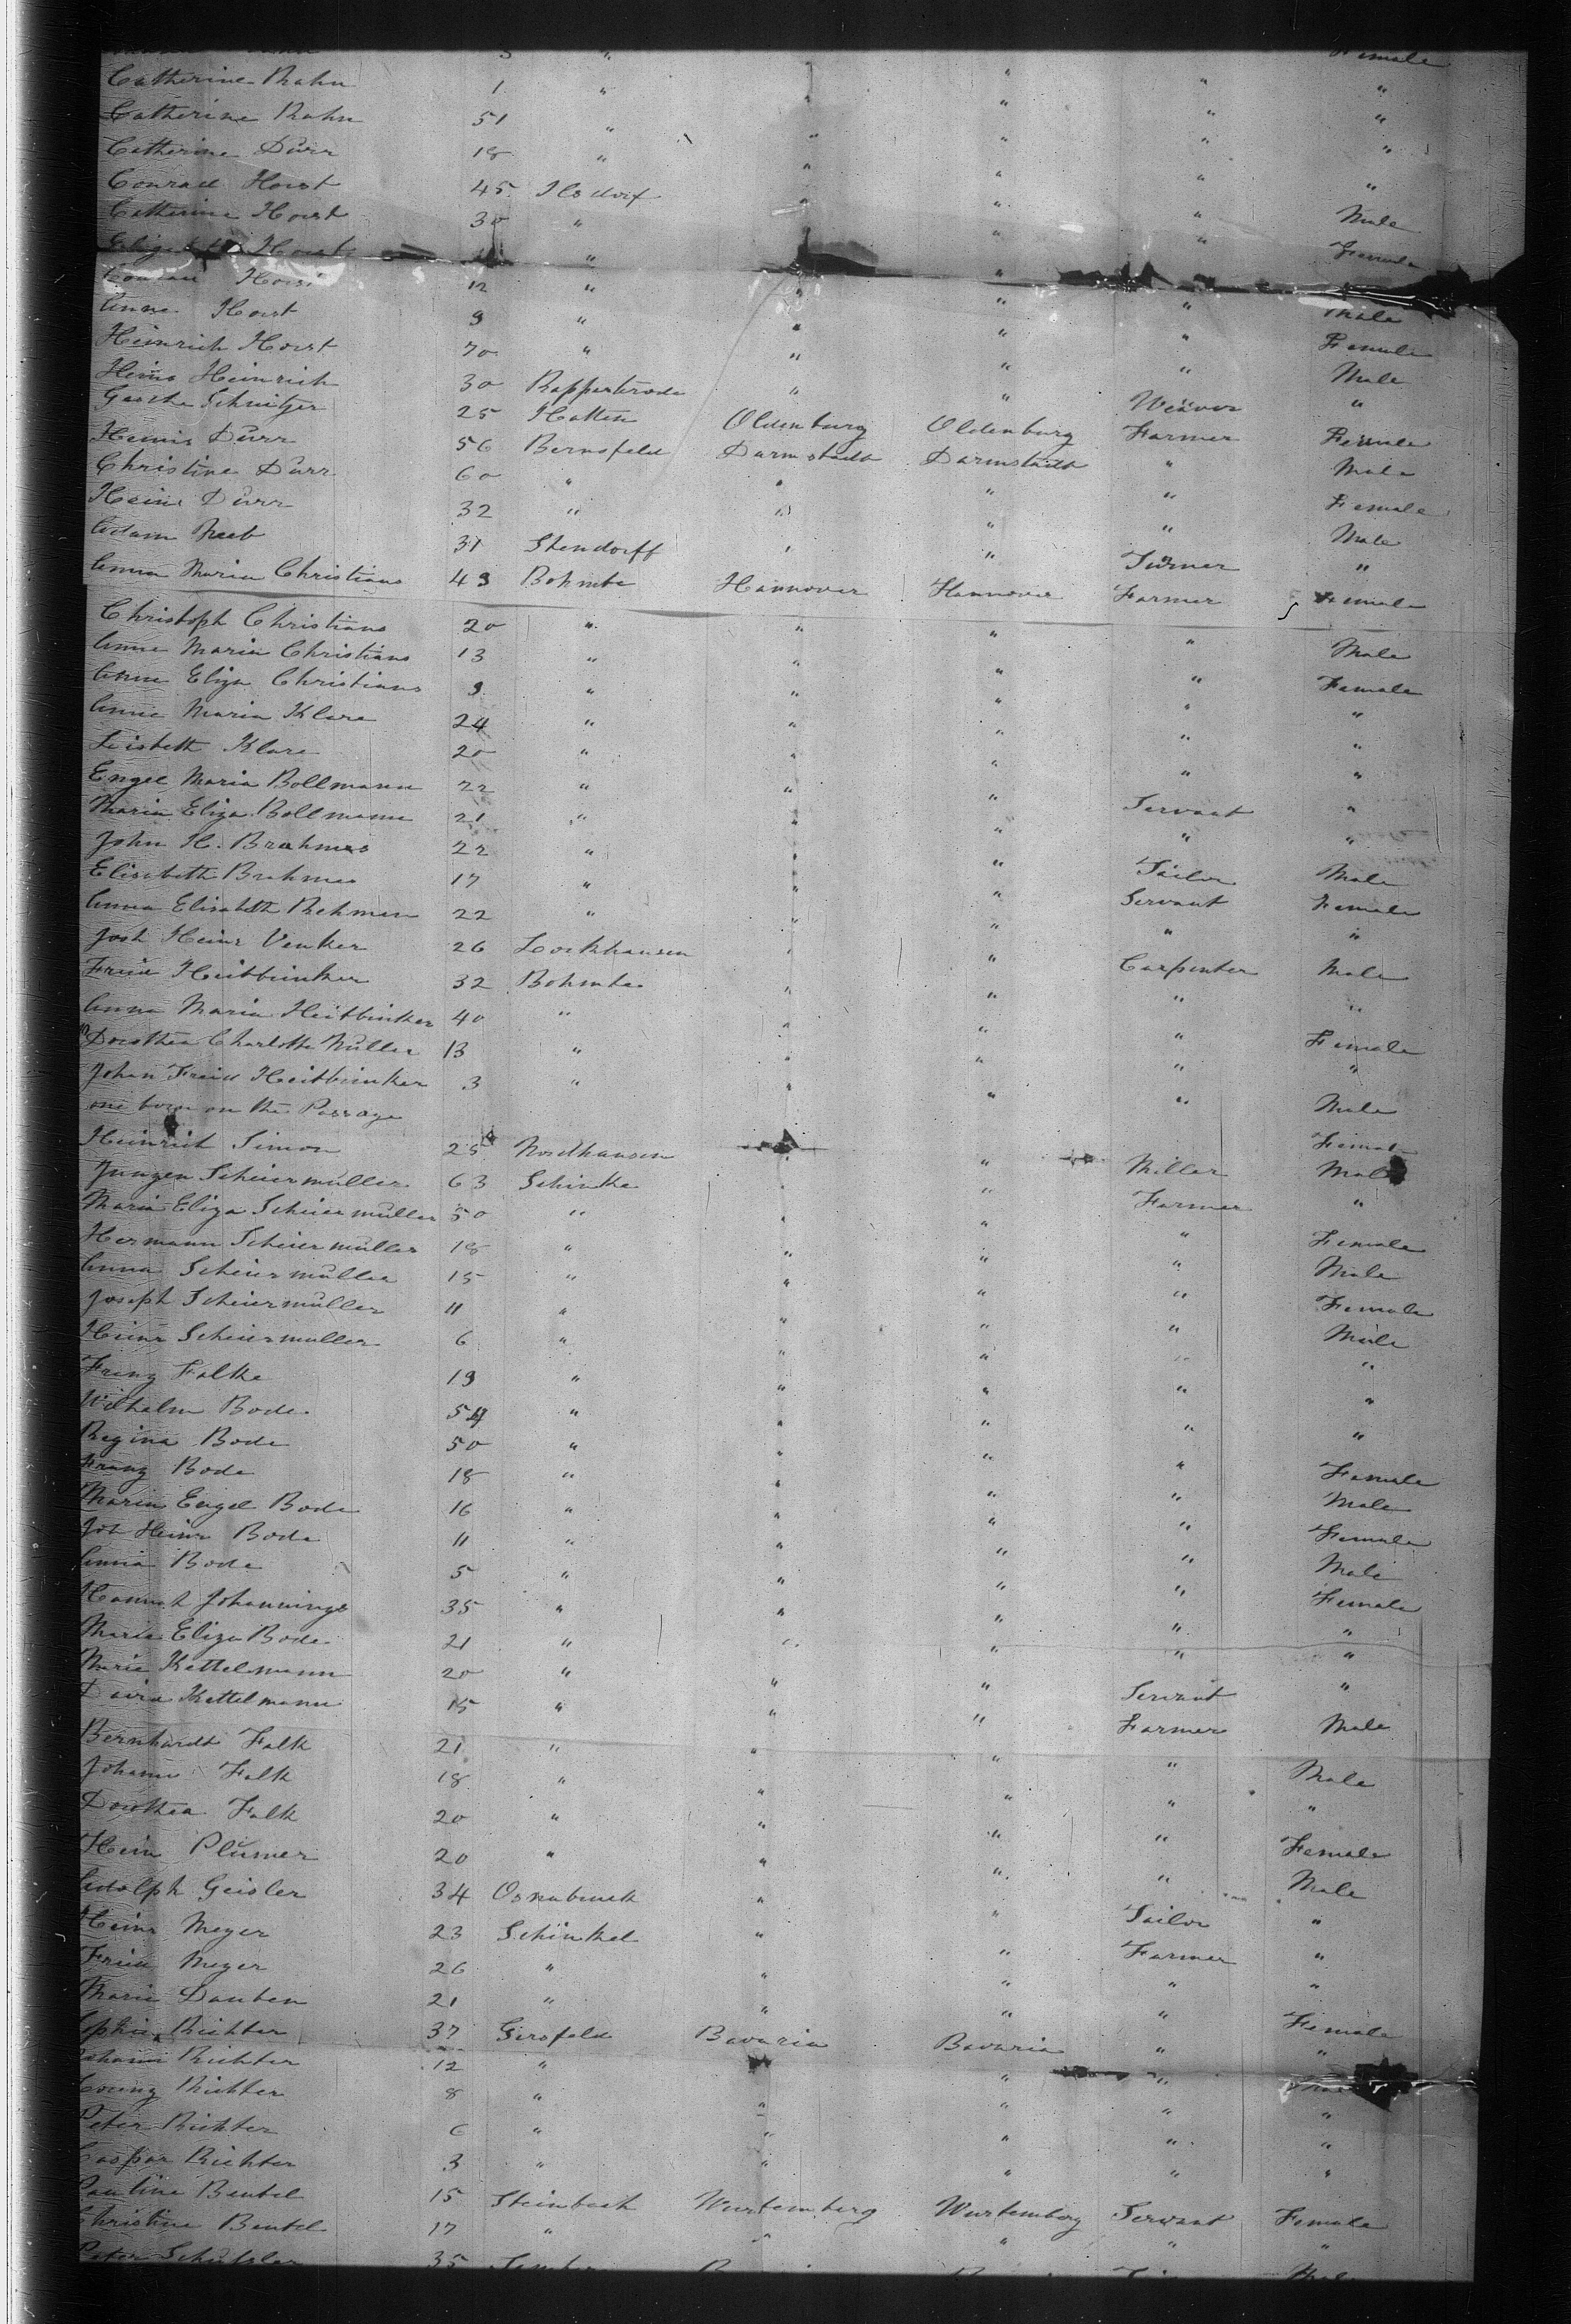 3 " " Female
Catherine Rahn 1 " " " " "
Catherine Rahn 51 " " " " "
Catherine Dürr 18 " " " " "
Conrad Horst 45 Ilsdorf " " " "
Catherine Horst 30 " " " " Male
Horst " " " " Female
Horst 12 " " " "
Anna Horst 9 " " " " Male
Heinrich Horst 70 " " " " Female
Heinr Heinrich 30 Rappertrode " " " Male
Gesche Schnitger 25 Hatten Oldenburg Oldenburg Weaver "
Heinr Dürr 56 Bernsfeld Darmstadt Darmstadt Farmer Female
Christine Dürr 60 " " " " Male
Heinr Dürr 32 " " " " Female
Adam Reeb 31 Stendorff " " " Male
Anna Maria Christians 49 Bohmte Hannover Hannover Turner "
Farmer Female
Christoph Christians 20 " " " " Male
Anna Maria Christians 13 " " " " Female
Anna Eliza Christians 9 " " " " "
Anna Maria Klare 24 " " " " "
Lisbeth Klare 20 " " " " "
Engel Maria Bollmann 22 " " " Servant "
Maria Eliza Bollmann 21 " " " " "
John H. Brahmes 22 " " " Tailor Male
Elisabeth Brahmes 17 " " " Servant Female
Anna Elisabeth Rehmen 22 " " " " "
Josh Heinr Venker 26 Lockhausen " " Carpenter Male
Fried Heitbrinker 32 Bohmte " " " "
Anna Maria Heitbrinker 40 " " " " Female
Dorothea Charlotte Müller 13 " " " " "
Johan Fried Heitbrinker 3 " " " " Male
one born on the Passage Female
Heinrich Simon 25 Nordhausen " " Miller Male
Jurgen Scheiermüller 63 Schinke " " Farmer "
Maria Eliza Scheiermüller 50 " " " " Female
Hermann Scheiermüller 18 " " " " Male
Anna Scheiermüller 15 " " " " Female
Joseph Scheiermüller 11 " " " " Male
Heinr Scheiermuller 6 " " " " "
Franz Falke 19 " " " " "
Wilhelm Bode 54 " " " " "
Regina Bode 50 " " " " Female
Franz Bode 18 " " " " Male
Maria Engel Bode 16 " " " " Female
Joh Heinr Bode 11 " " " " Male
Anna Bode 5 " " " " Female
Hannah Johannings 35 " " " " "
Maria Eliza Bode 21 " " " " "
Marie Kettelmann 20 " " " Servant "
David Kettelmann 15 " " " Farmer Male
Bernhardt Falk 21 " " " " Male
Johann Falk 18 " " " " "
Dorothea Falk 20 " " " " Female
Hein Plümer 20 " " " " Male
Adolph Geisler 34 Osnabruck " " Tailor "
Heinr Meyer 23 Schinkel " " Farmer "
Fried Meyer 26 " " " " "
Maria Dauben 21 " " " " Female
Richter 37 Gersfeld Bavaria Bavaria " "
Johann Richter 12 " " " "
Richter 8 " " " " "
Peter Richter 6 " " " " "
Caspar Richter 3 " " " " "
Pauline Beutel 15 Steinbach Wurtemberg Wurtemberg Servant Female
Christine Beutel 17 " " " " "
Peter 35